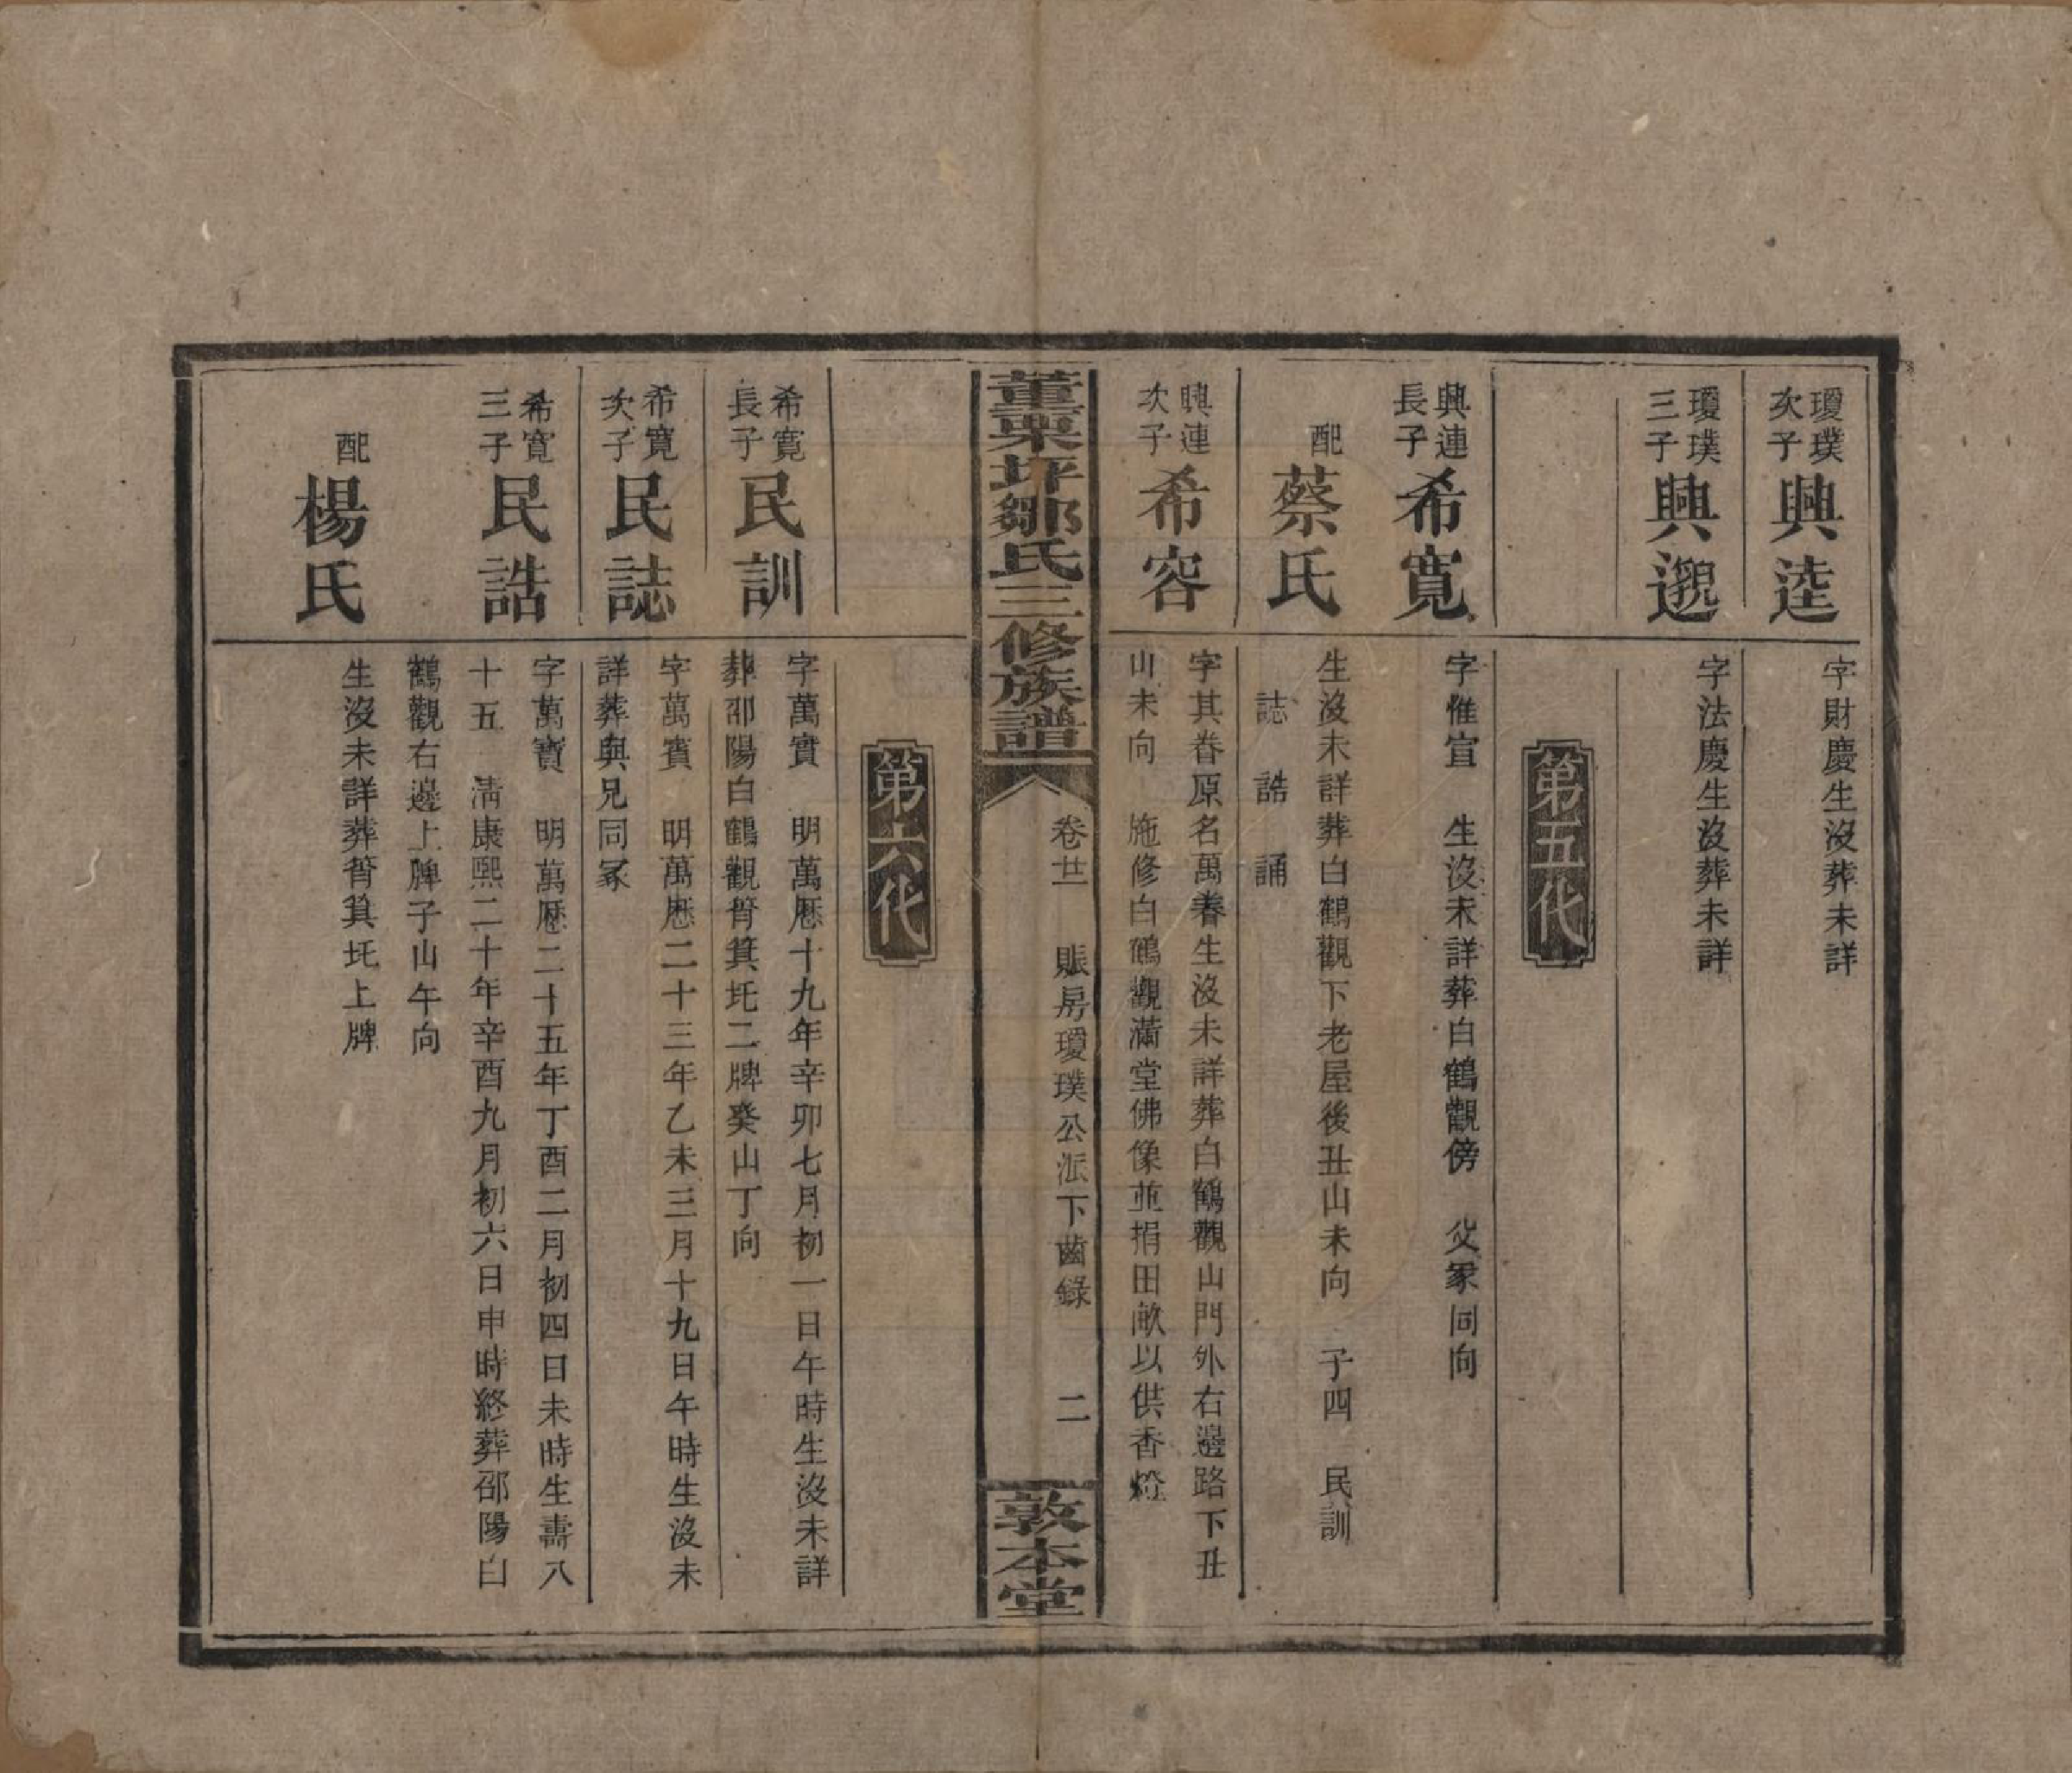 瓊璞次子 興逵
字財慶生沒葬未詳
瓊璞三子 興邈
字法慶生沒葬未詳
第五代
興連長子 希寬
字惟宣 生沒未詳葬白鶴觀傍 父冢同向
配 蔡氏
生沒未詳葬白鶴觀下老屋後丑山未向 子四 民訓
誌 誥 誦
興連次子 希容
字其眷原名萬春生沒未詳葬白鶴觀山門外右邊路下丑
山未向 施修白鶴觀滿堂佛像並捐田畝以供香燈
董栗坪鄒氏三修族譜
卷廿 賬房瓊璞公派下齒錄 二
敦本堂
第六代
希寬長子 民訓
字萬實 明萬曆十九年辛卯七月初一日午時生沒未詳
葬邵陽白鶴觀筲箕圫二牌癸山丁向
希寬次子 民誌
字萬賓 明萬曆二十三年乙未三月十九日午時生沒未
詳葬與兄同冢
希寬三子 民誥
字萬寶 明萬曆二十五年丁酉二月初四日未時生壽八
十五 清康熙二十年辛酉九月初六日申時終葬邵陽白
鶴觀右邊上牌子山午向
配 楊氏
生沒未詳葬筲箕圫上牌